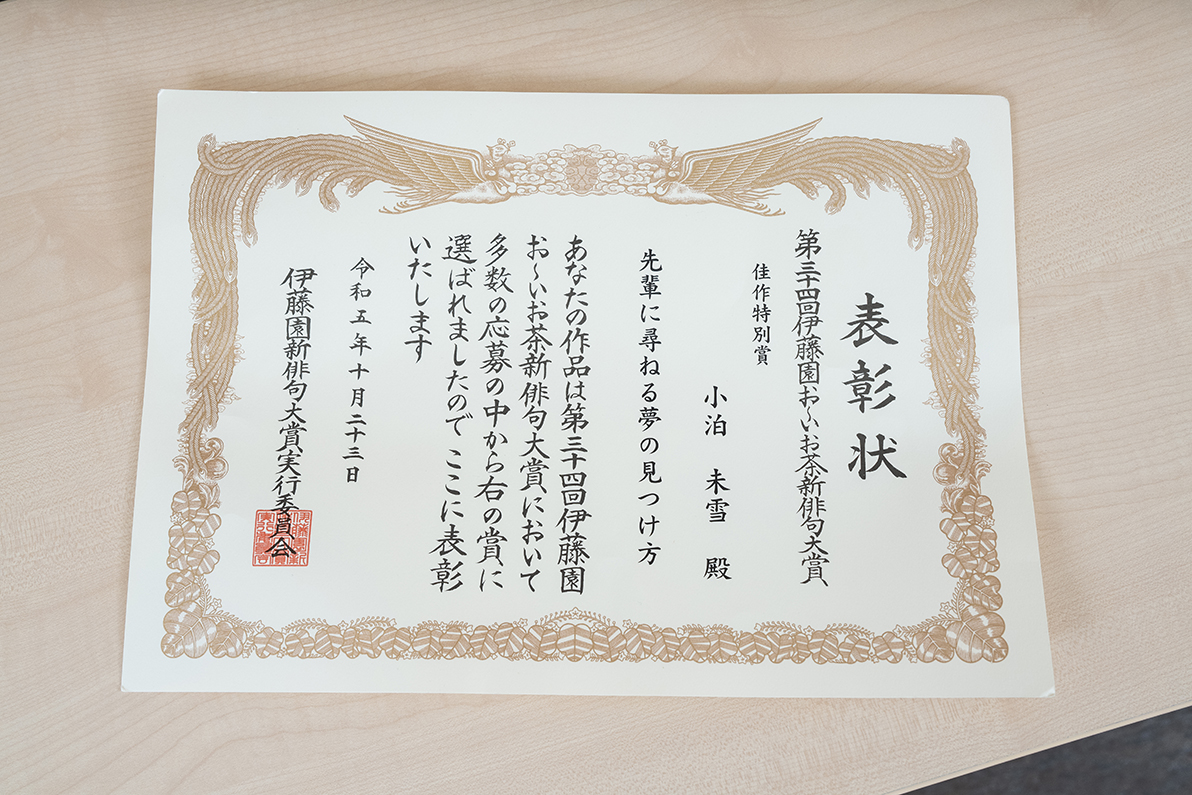 表彰状
第三十四回伊藤園お〜いお茶新俳句大賞
佳作特別賞
小泊 未雪 殿
先輩に尋ねる夢の見つけ方
あなたの作品は第三十四回伊藤園
お〜いお茶新俳句大賞において
多数の応募の中から右の賞に
選ばれましたので ここに表彰
いたします
令和五年十月二十三日
伊藤園新俳句大賞実行委員会